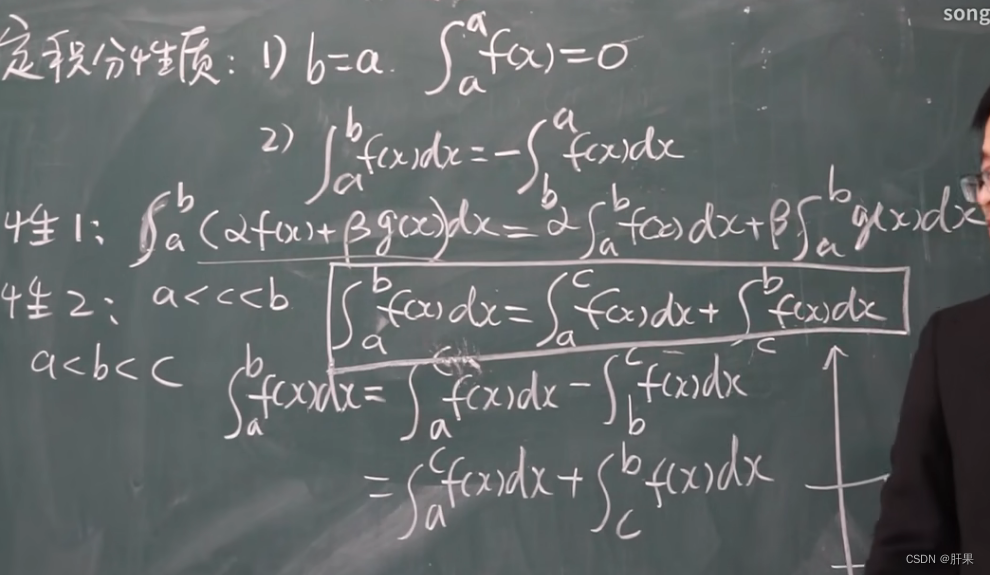 song
定积分性质: 1) b=a. ∫_a^a f(x)=0
2) ∫_a^b f(x)dx=-∫_b^a f(x)dx
性1: ∫_a^b (αf(x)+βg(x))dx=α∫_a^b f(x)dx+β∫_a^b g(x)dx
性2: a<c<b ∫_a^b f(x)dx=∫_a^c f(x)dx+∫_c^b f(x)dx
a<b<c ∫_a^b f(x)dx=∫_a^c f(x)dx-∫_b^c f(x)dx
=∫_a^c f(x)dx+∫_c^b f(x)dx
CSDN @肝果